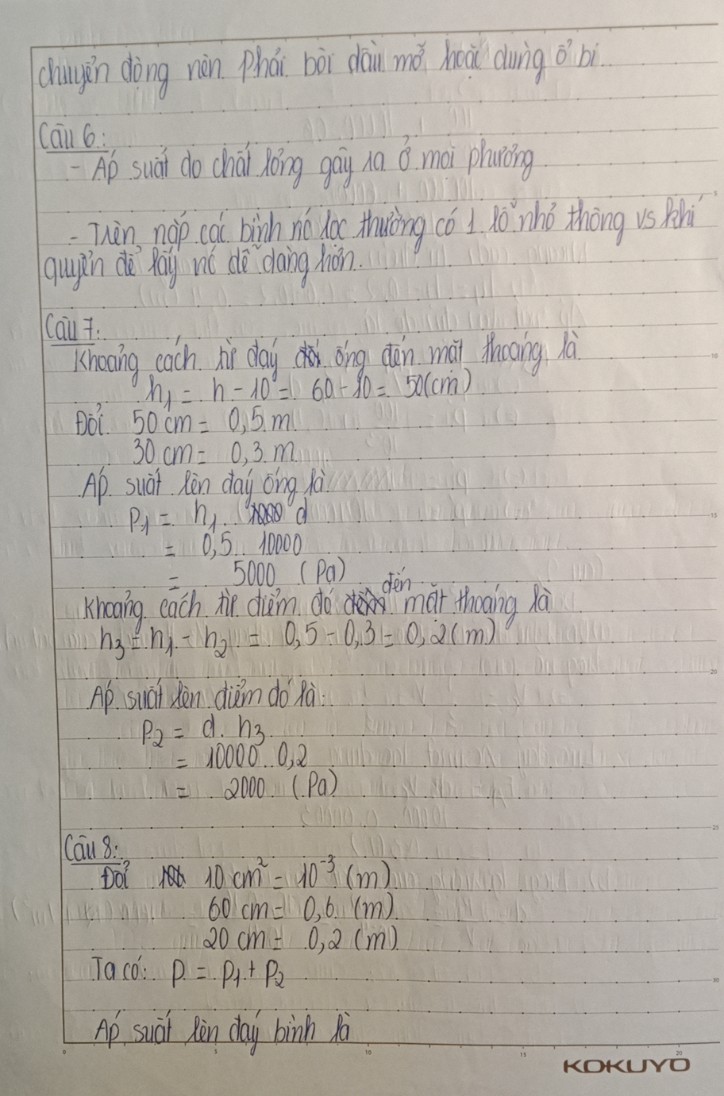 chuyển động nên phải bôi dầu mỡ hoặc dùng ổ bi.
Câu 6:
- Áp suất do chất lỏng gây ra ở mọi phương
- Trên nắp các bình nc lọc thường có 1 lỗ nhỏ thông vs khí
quyển để lấy nc dễ dàng hơn.
Câu 7:
Khoảng cách từ đáy ống đến mặt thoáng là
h₁ = h - 10 = 60 - 10 = 50 (cm)
Đổi 50 cm = 0,5 m
30 cm = 0,3 m
Áp suất lên đáy ống là
P₁ = h₁ . d
= 0,5 . 10000
= 5000 (Pa)
Khoảng cách từ điểm đó đến mặt thoáng là
h₃ = h₁ - h₂ = 0,5 - 0,3 = 0,2 (m)
Áp suất lên điểm đó là:
P₂ = d . h₃
= 10000 . 0,2
= 2000 (Pa)
Câu 8:
Đổi 10 cm² = 10⁻³ (m)
60 cm = 0,6 (m)
20 cm = 0,2 (m)
Ta có: P = P₁ + P₂
Áp suất lên đáy bình là
KOKUYO